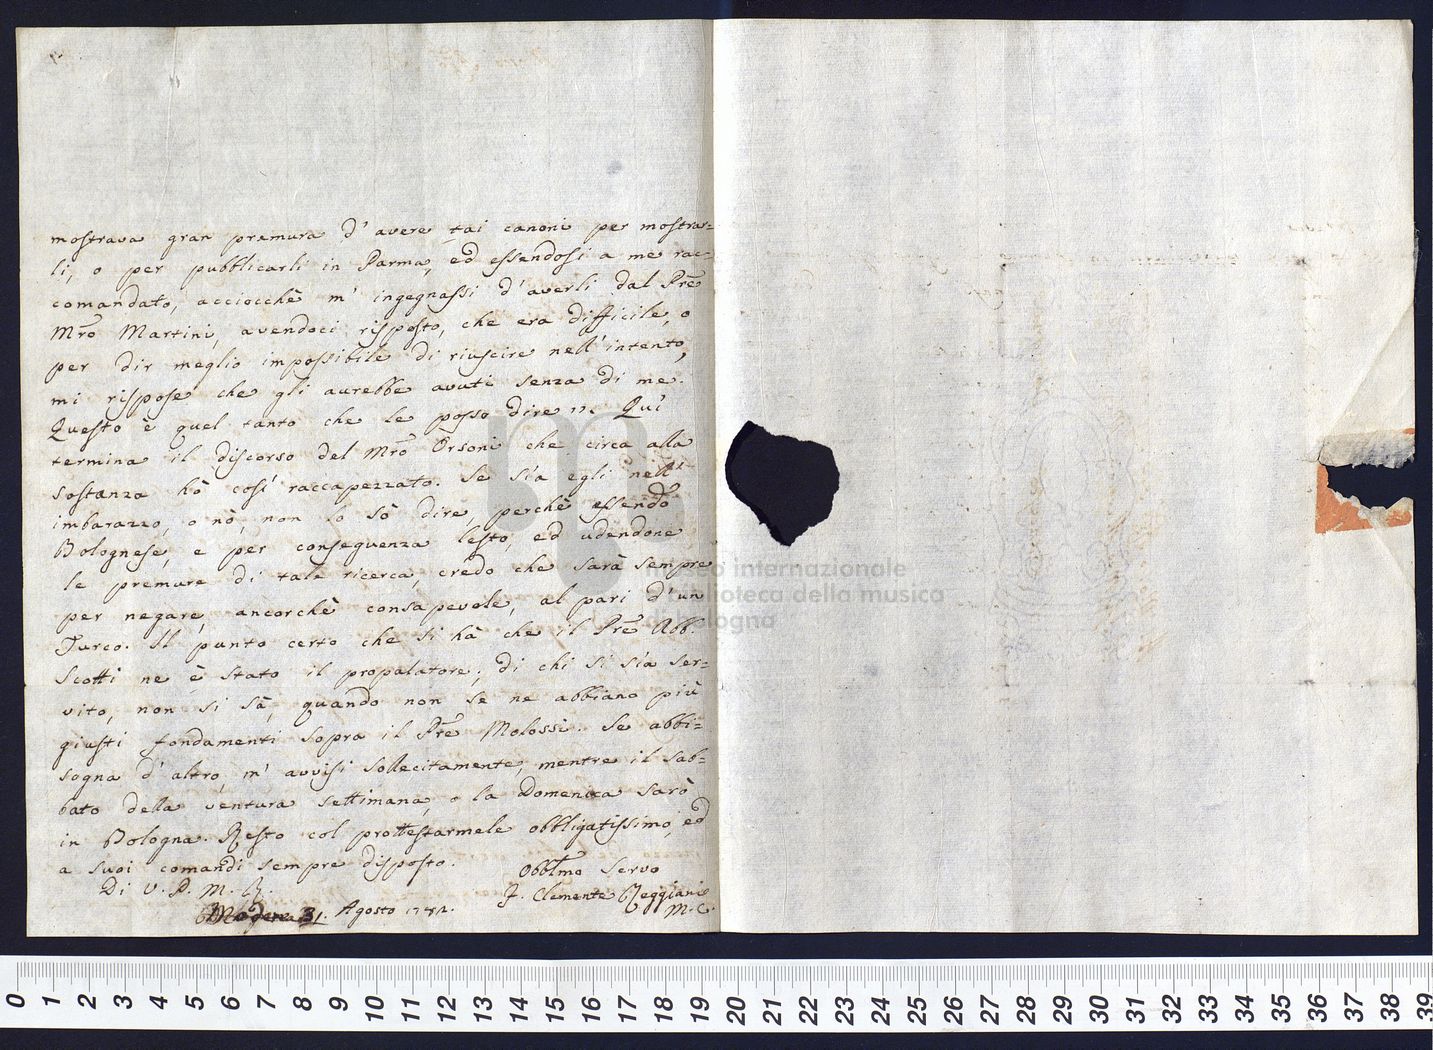 mostrava gran premura d'avere tai canoni per mostrar=
li, o per pubblicarli in Parma, ed essendosi a me rac=
comandato, acciocchè m'ingegnassi d'averli dal Prẽ
Mrõ Martini, avendoci risposto, che era difficile, o
per dir meglio impossibile di riuscire nell'intento,
mi rispose che gli aurebbe avuti senza di me.
Questo è quel tanto che le posso dire ". Quì
termina il discorso del Mrõ Orsoni che circa alla
sostanza hò così raccapezzato. Se sia egli nell'
imbarazzo, o nò, non lo sò dire, perchè essendo
Bolognese, e per conseguenza lesto, ed udendone
le premure di tale ricerca credo che sarà sempre
per negare, ancorchè consapevole, al pari d'un
Turco. Il punto certo che si hà che il Prẽ Abb.
Scotti ne è stato il propalatore; di chi si sia ser=
vito, non si sà, quando non se ne abbiano più
giusti fondamenti sopra il Prẽ Molossi. Se abbi=
sogna d'altro, m'avvisi sollecitamente, mentre il sab=
bato della ventura settimana, o la Domenica sarò
in Bologna. Resto col prottestarmele obbligatissimo, ed
a suoi comandi sempre disposto.
Di V. P. M. R.
Obblmo Servo
F. Clemente Reggiani
M. C.
Modena 31. Agosto 1782.
museo internazionale
e biblioteca della musica
di bologna
0 1 2 3 4 5 6 7 8 9 10 11 12 13 14 15 16 17 18 19 20 21 22 23 24 25 26 27 28 29 30 31 32 33 34 35 36 37 38 39